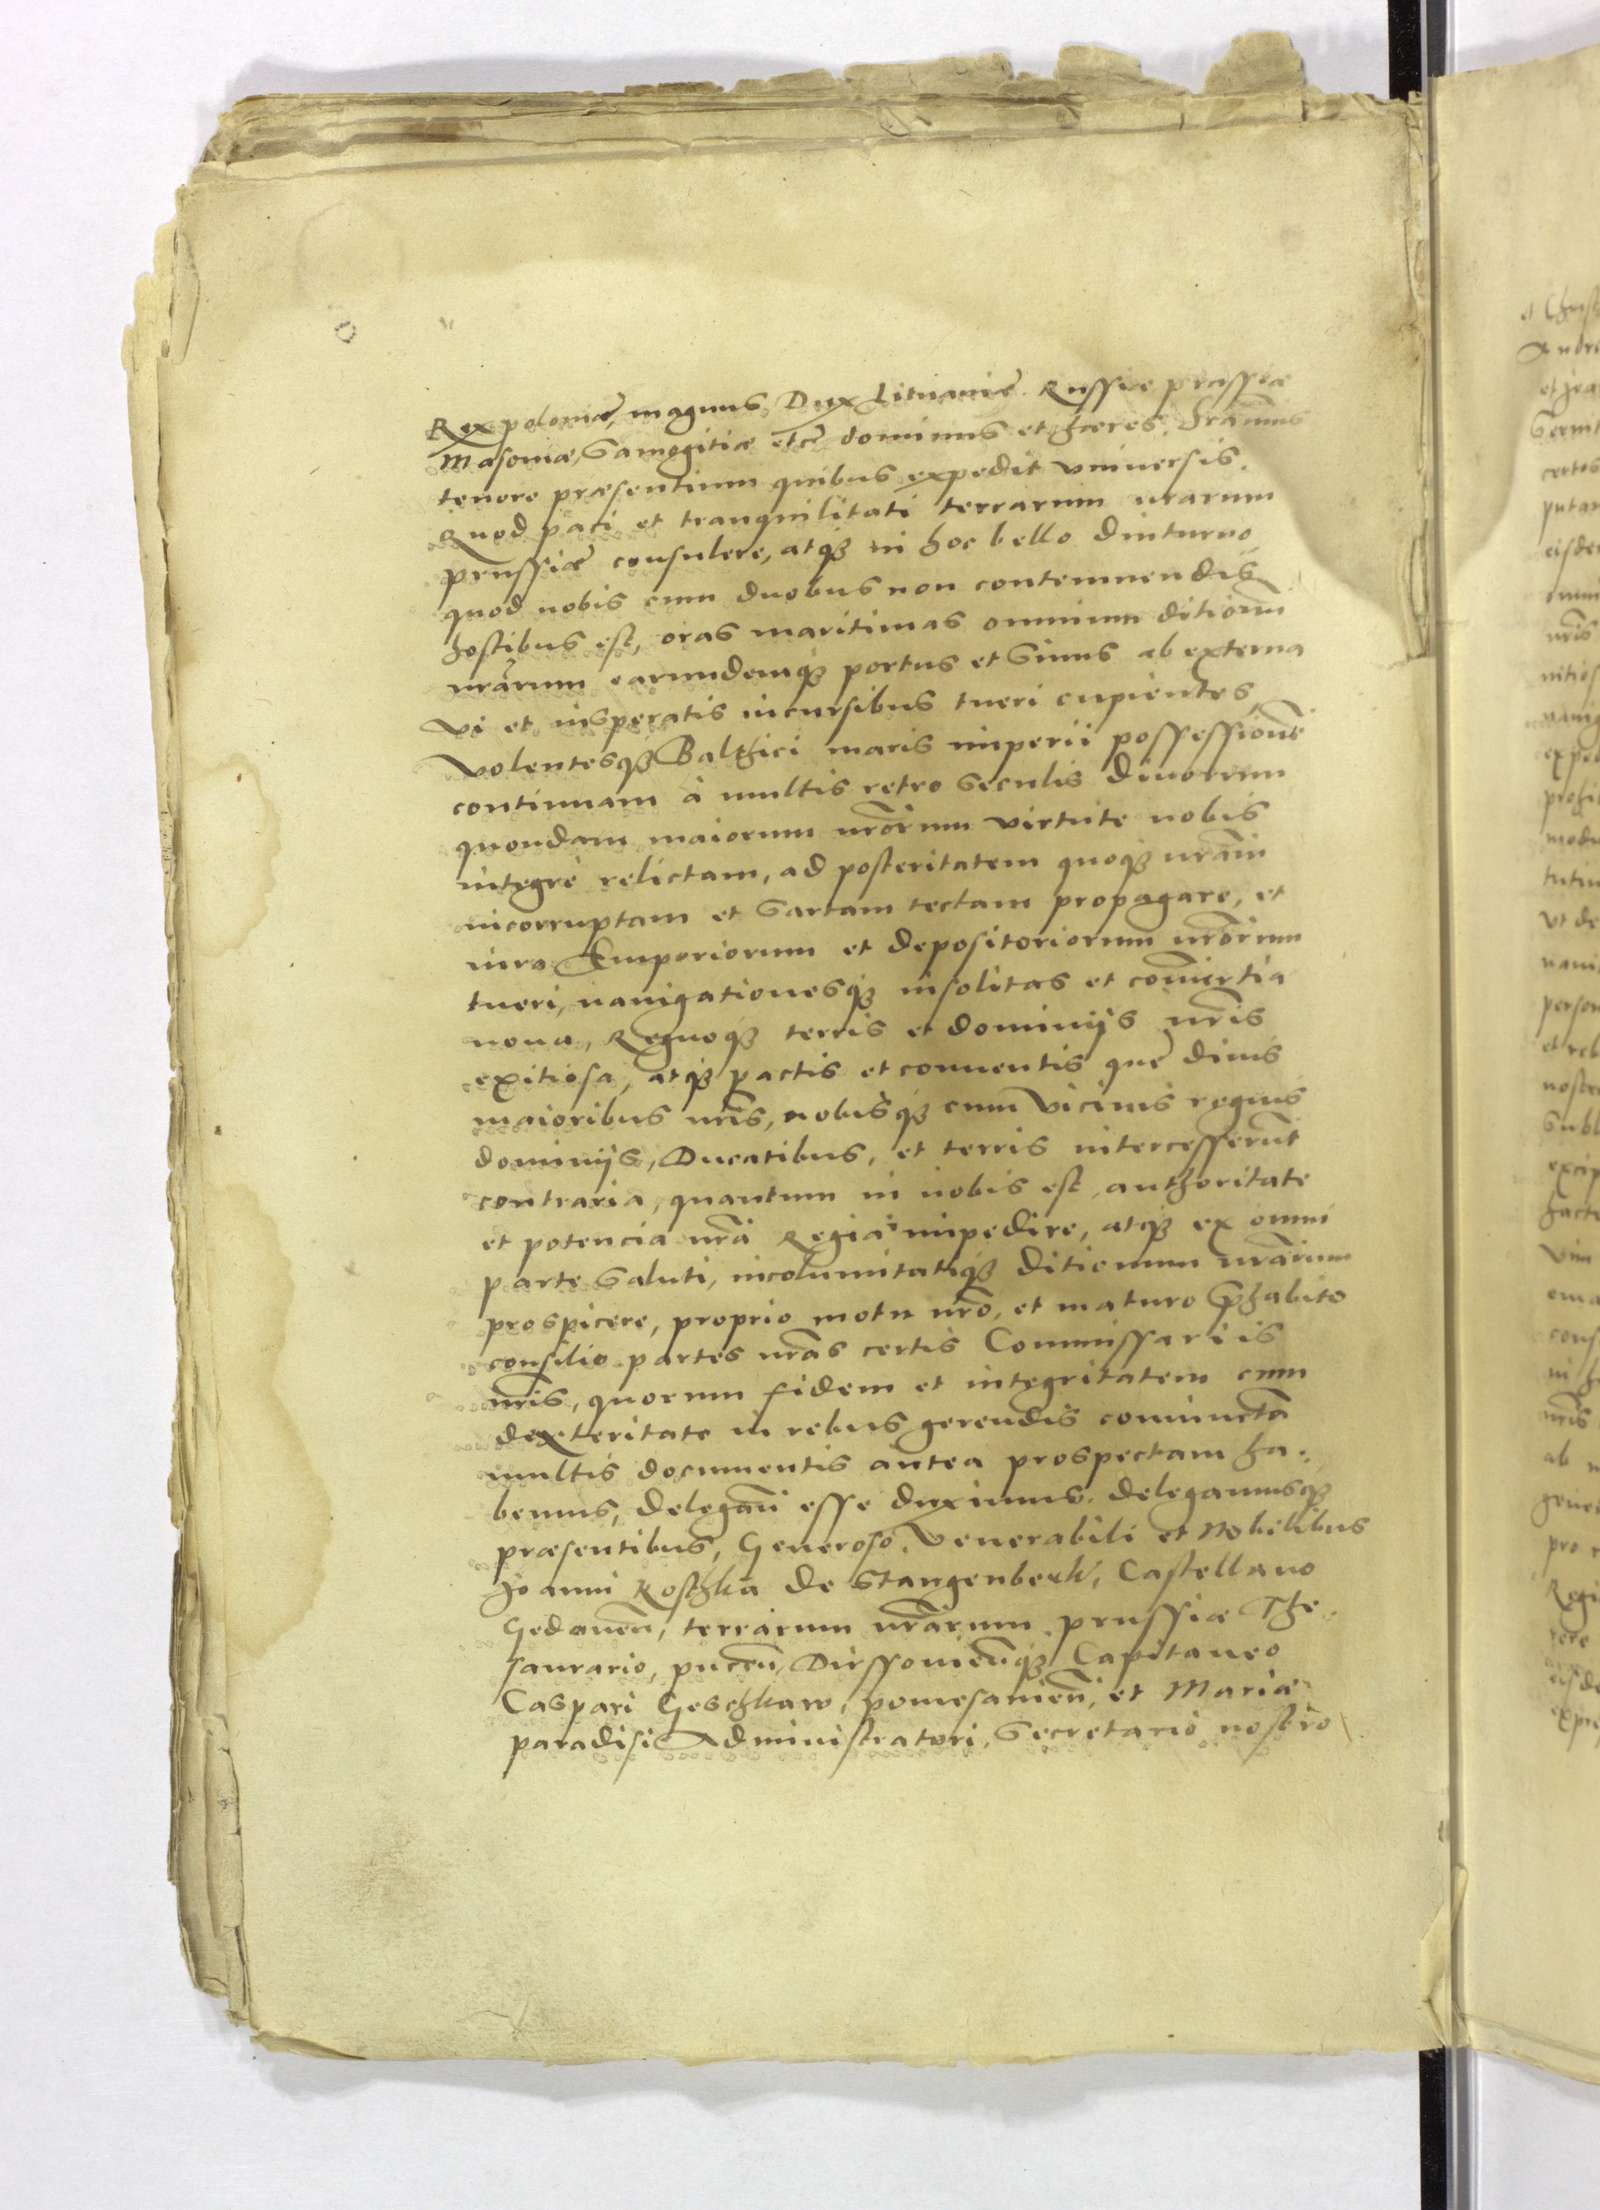 Rex poloniæ, magnus Dux Lituaniæ Russiæ prussiæ
Masoniæ, Samogitiæ etcę dominus et hæres.
tenore præsentium quibus expedit vniuersis.
Quod paci et tranquilitati terrarum nrarum
prussiæ consulere, atqȝ in hoc bello diuturno
quod nobis cum duobus non contemnendis
hostibus est, oras maritimas omnium ditionũ
nrãrum earundemqȝ portus et Sinus ab externa
vi et insperatis incursibus tueri cupientes
Volentesqȝ Balthici maris imperii possessionẽ
continuam à multis retro Seculis Diuorum
quondam maiorum nrõrum virtute nobis
integrè relictam, ad posteritatem quoqȝ nrãm
incorruptam et Sartam tectam propagare, et
iura Emporiorum et depositoriorum nrõrum
tueri, nauigationesqȝ insolitas et com̃ertia
noua, Regnoqȝ terris et dominijs nrĩs
exitiosa, atqȝ pactis et conuentis quę diuis
maioribus nrĩs, nobisqȝ cum vicinis regnis
dominijs, Ducatibus, et terris intercesserũt
contraria, quantum in nobis est, authoritate
et potencia nrã Regia impedire, atqȝ ex omni
parte Saluti, incolumitatiqȝ ditionum nrãrum
prospicere, proprio motu nrõ, et maturo p̃habito
consilio partes nrãs certis Commissariis
nrĩs, quorum fidem et integritatem cum
dexteritate in rebus gerendis coniunctã
multis documentis antea prospectam ha-
bemus, delegan̄ esse duximus. delegamusqȝ
præsentibus, Generoso, Venerabili et Nobilibus
Joanni Koschka de Stangenberk, Castellano
Gedanen̄, terrarum nrãrum prussiæ The-
saurario, pucen̄, Dirssouien̄qȝ Capitaneo
Caspari Geschkaw, pomesanien̄, et Mariæ
paradisi Administratori, Secretario nostro